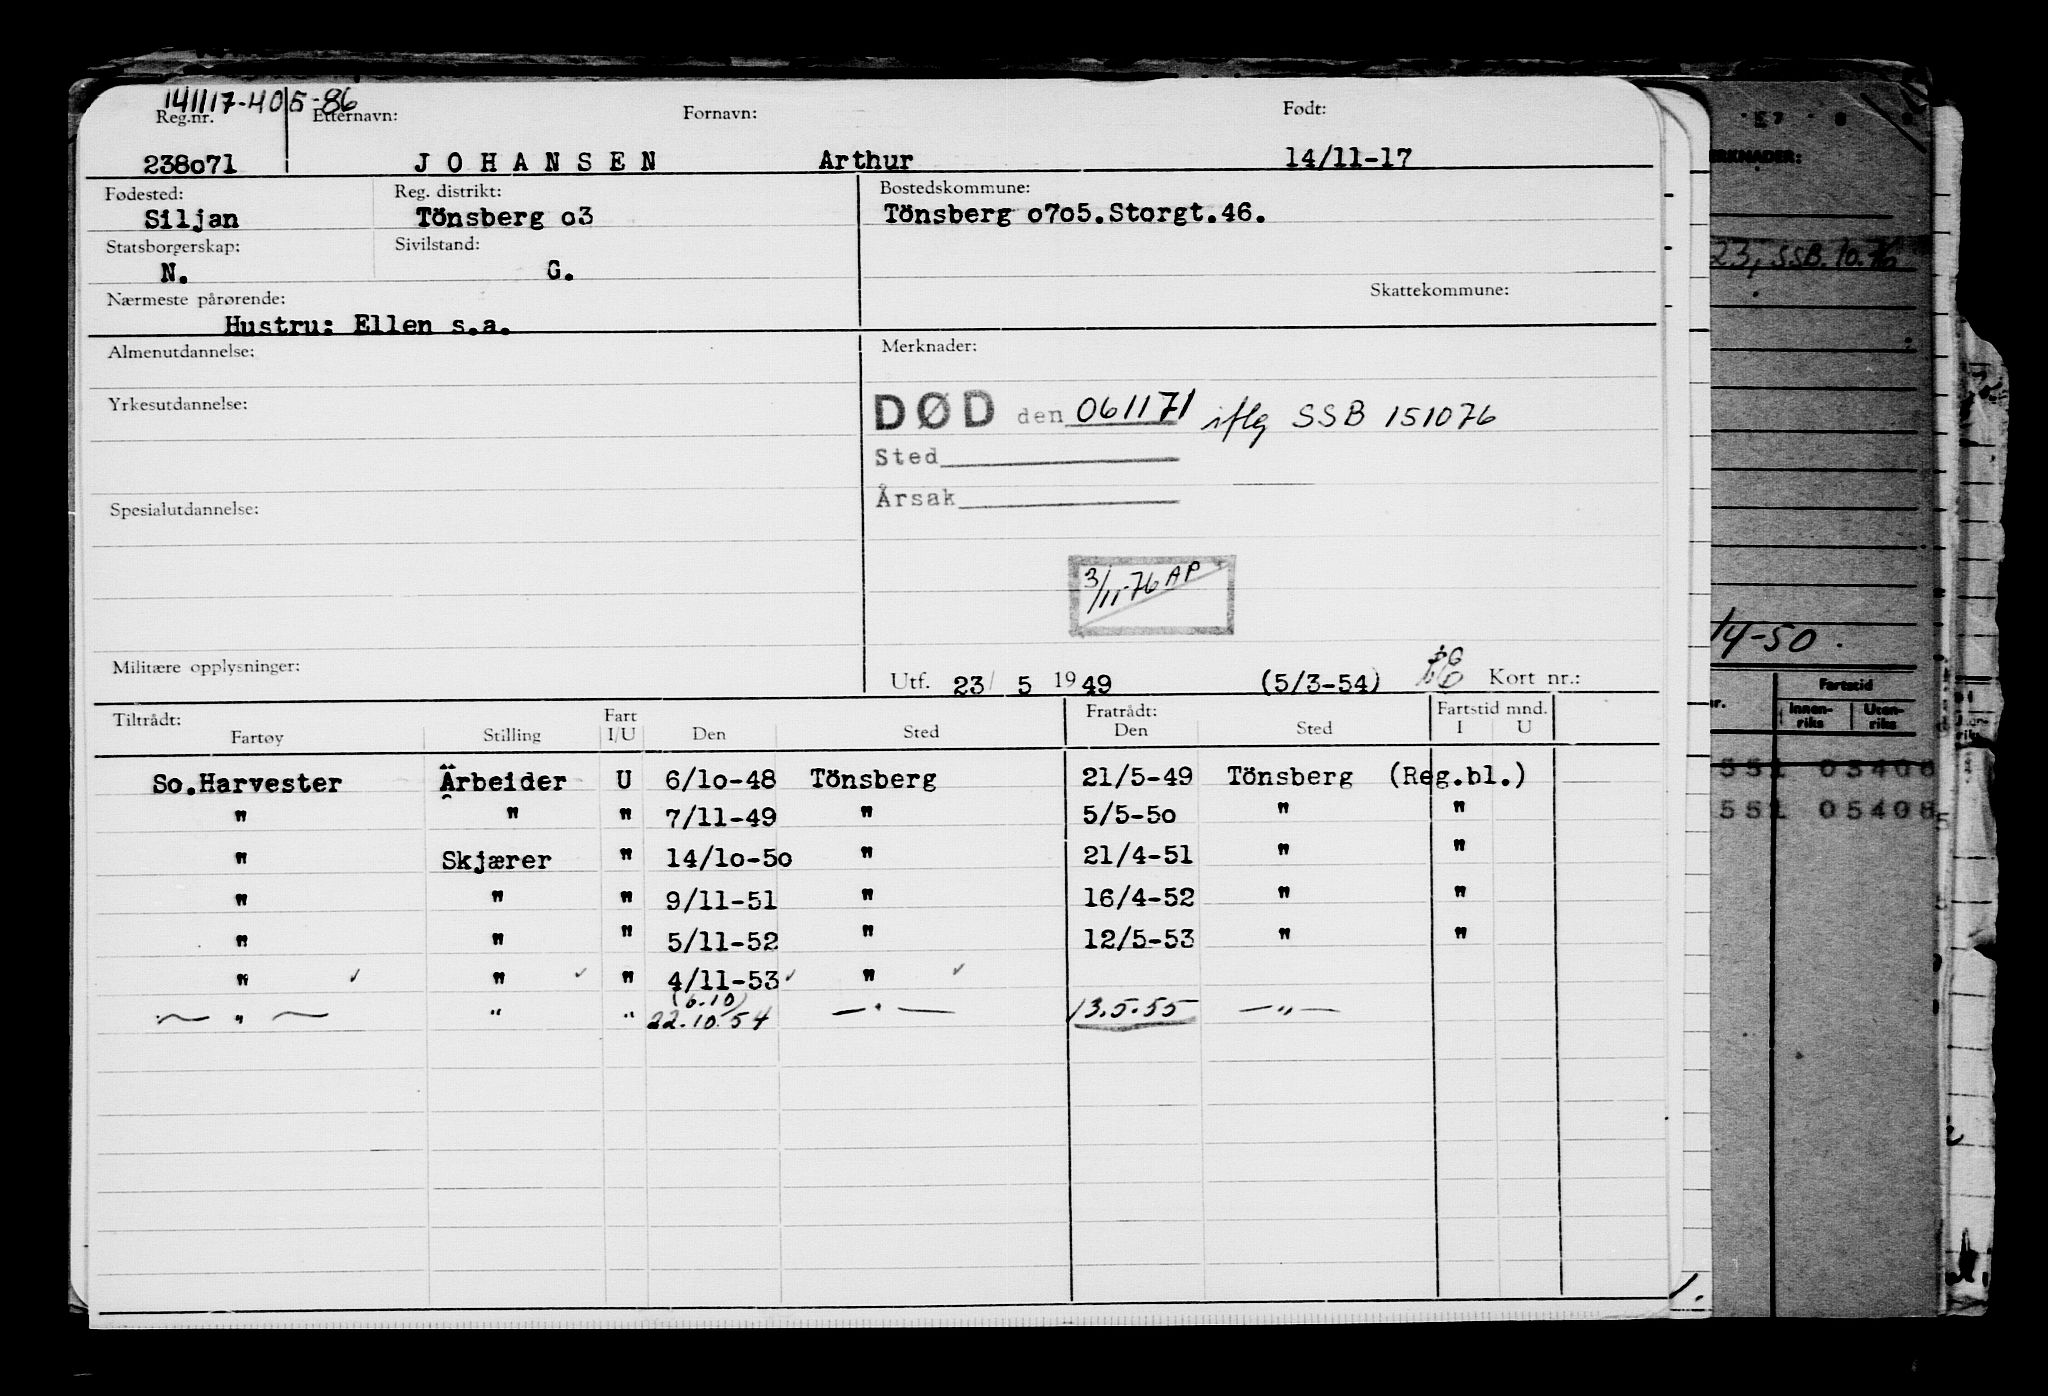 141117-405-86
Reg.nr. Etternavn: Fornavn: Født:
238o71 JOHANSEN Arthur 14/11-17
Fødested: Reg. distrikt: Bostedskommune:
Siljan Tönsberg o3 Tönsberg o7o5.Storgt.46.
Statsborgerskap: Sivilstand:
N. G.
Nærmeste pårørende: Skattekommune:
Hustru: Ellen s.a.
Almenutdannelse: Merknader:
Yrkesutdannelse:
DØD den 061171 iflg SSB 151076
Sted
Årsak
Spesialutdannelse:
3/11-76 AP
Militære opplysninger:
Utf. 23/ 5 1949 (5/3-54) Kort nr.:
Tiltrådt: Fart Fratrådt: Fartstid mnd.
Fartøy Stilling I/U Den Sted Den Sted I U
So.Harvester Arbeider U 6/1o-48 Tönsberg 21/5-49 Tönsberg (Reg.bl.)
" " " 7/11-49 " 5/5-5o " "
" Skjærer " 14/1o-5o " 21/4-51 " "
" " " 9/11-51 " 16/4-52 " "
" " " 5/11-52 " 12/5-53 " "
" ✓ " ✓ " 4/11-53 ✓ " ✓
(6.10)
— " — " " 22.10.54 — " — 13.5.55 — " —
MERKNADER:
23, SSB. 10.76
1/4-50.
Fartstid
Innen-
riks
Uten-
riks
551 03408
551 05408